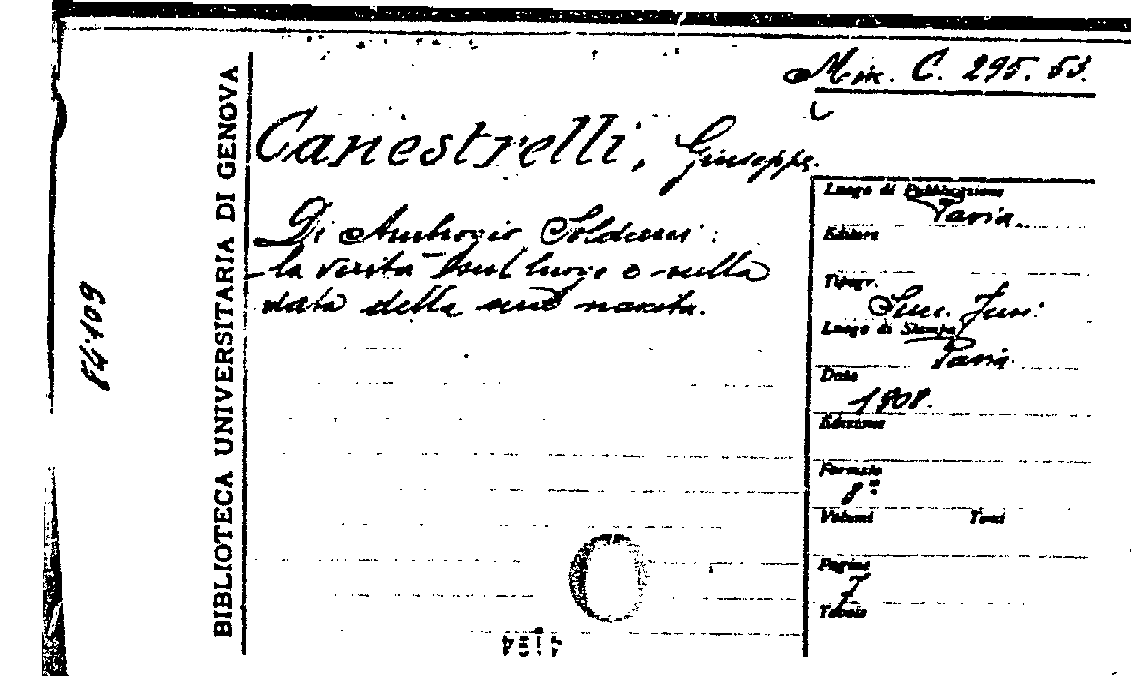 Misc. C. 295. 53.
Canestrelli, Giuseppe.
Di Ambrogio Soldani:
la verità sul luogo e sulla
data della sua nascita.
BIBLIOTECA UNIVERSITARIA DI GENOVA
84109
Luogo di Pubblicazione
Pavia.
Editore
Tipogr.
Succ. Fusi
Luogo di Stampa
Pavia
Data
1908.
Edizione
Formato
8°
Volumi Tomi
Pagine
7
Tavole